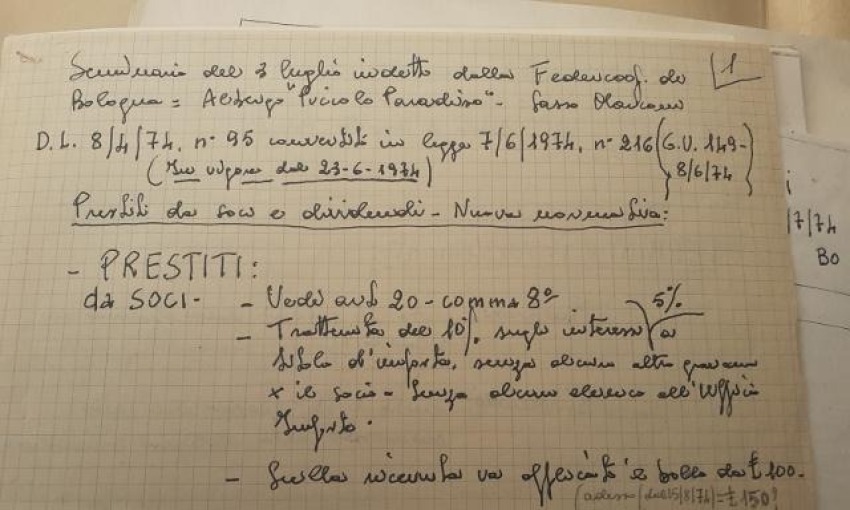 Seminario del 3 luglio indetto dalla Federcoop. di 1
Bologna = Albergo "Piccolo Paradiso" - Sasso Marconi
D.L. 8/4/74, n° 95 convertito in legge 7/6/1974, n° 216 (G.U. 149-
8/6/74)
(In vigore dal 23-6-1974)
Prestiti da soci e dividendi - Nuova normativa:
- PRESTITI:
da SOCI - - Vedi art 20 - comma 8° 5%
- Trattenuta del 10% sugli interessi a
titolo d'imposta, senza alcun altro gravame
x il socio - Senza alcun elenco all'Ufficio
Imposte.
- Sulla ricevuta va il bollo da £ 100.
(adesso (dal 15/8/74) = £ 150!
i
/7/74
Bo